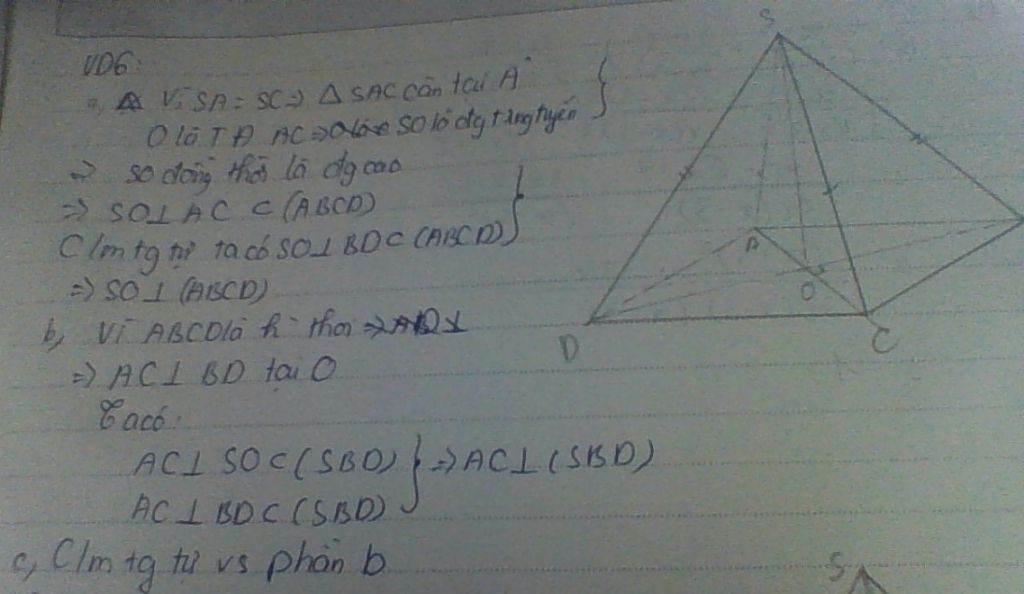 VD6:
a, Vì SA = SC => Δ SAC cân tại A
O là TĐ AC => SO là đg trung tuyến
=> SO đồng thời là đg cao
=> SO⊥ AC ⊂ (ABCD)
C/m tg tự ta có SO⊥ BD ⊂ (ABCD)
=> SO⊥ (ABCD)
b, Vì ABCD là h thoi =>
=> AC⊥ BD tại O
Ta có:
AC⊥ SO ⊂ (SBD) } => AC⊥ (SBD)
AC⊥ BD ⊂ (SBD)
c, C/m tg tự vs phần b
S
A
O
D
C
S